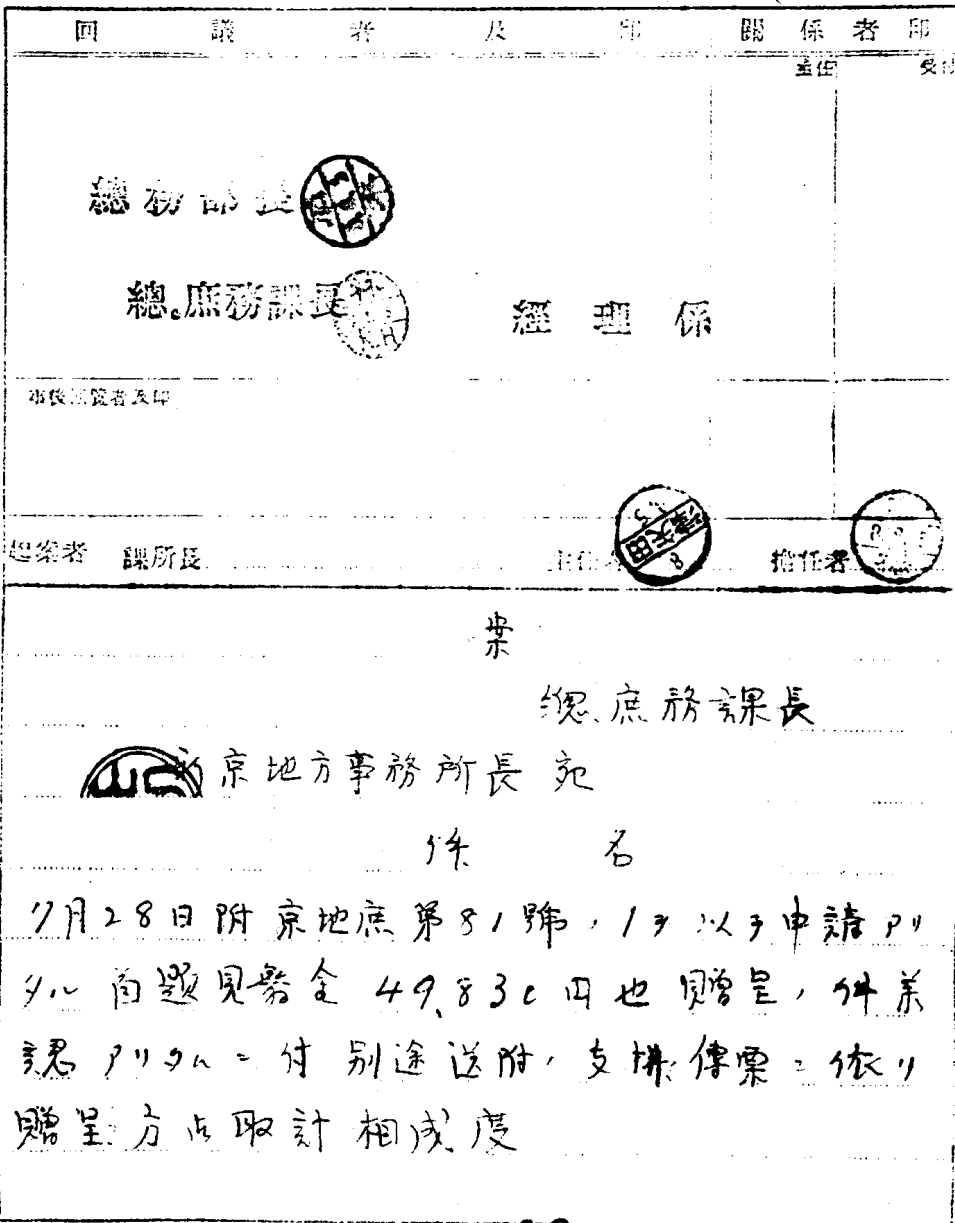 回議者及印 關係者印
主任 受付
總務部長
總庶務課長 經理係
事後回覧者及印
起案者 課所長 主任者 擔任者
案
總庶務課長
新京地方事務所長 宛
件 名
7月28日附京地庶第81號ノ1ヲ以テ申請アリ
タル首題見舞金 円也贈呈ノ件承
認アリタルニ付別途送附ノ支拂傳票ニ依リ
贈呈方占取計相成度